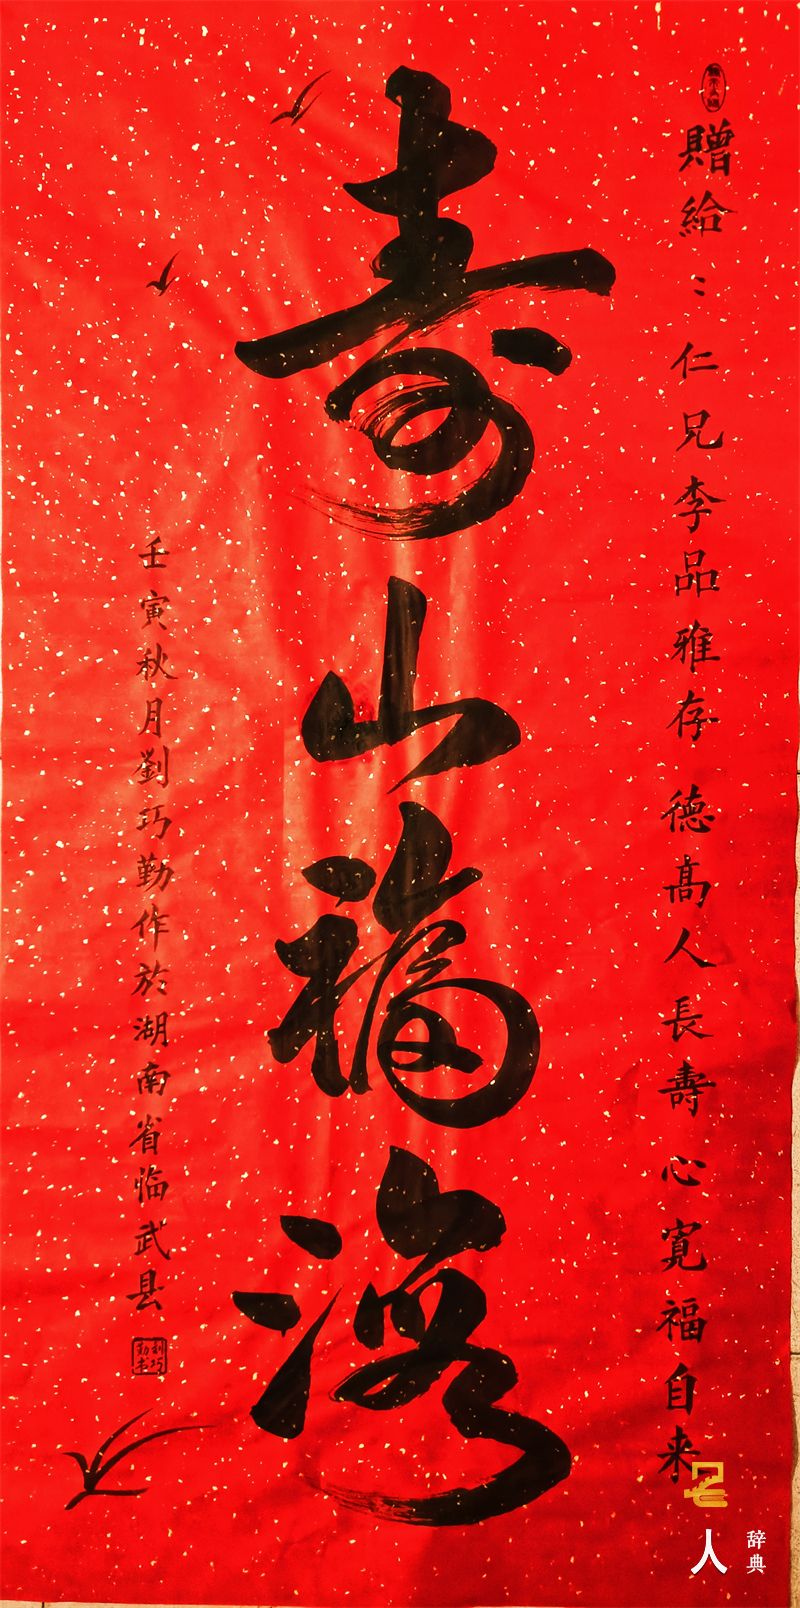 贈給：仁兄李品雅存 德高人長壽 心寬福自来
寿山福海
壬寅秋月劉巧勤作於湖南省临武县
人
辞典